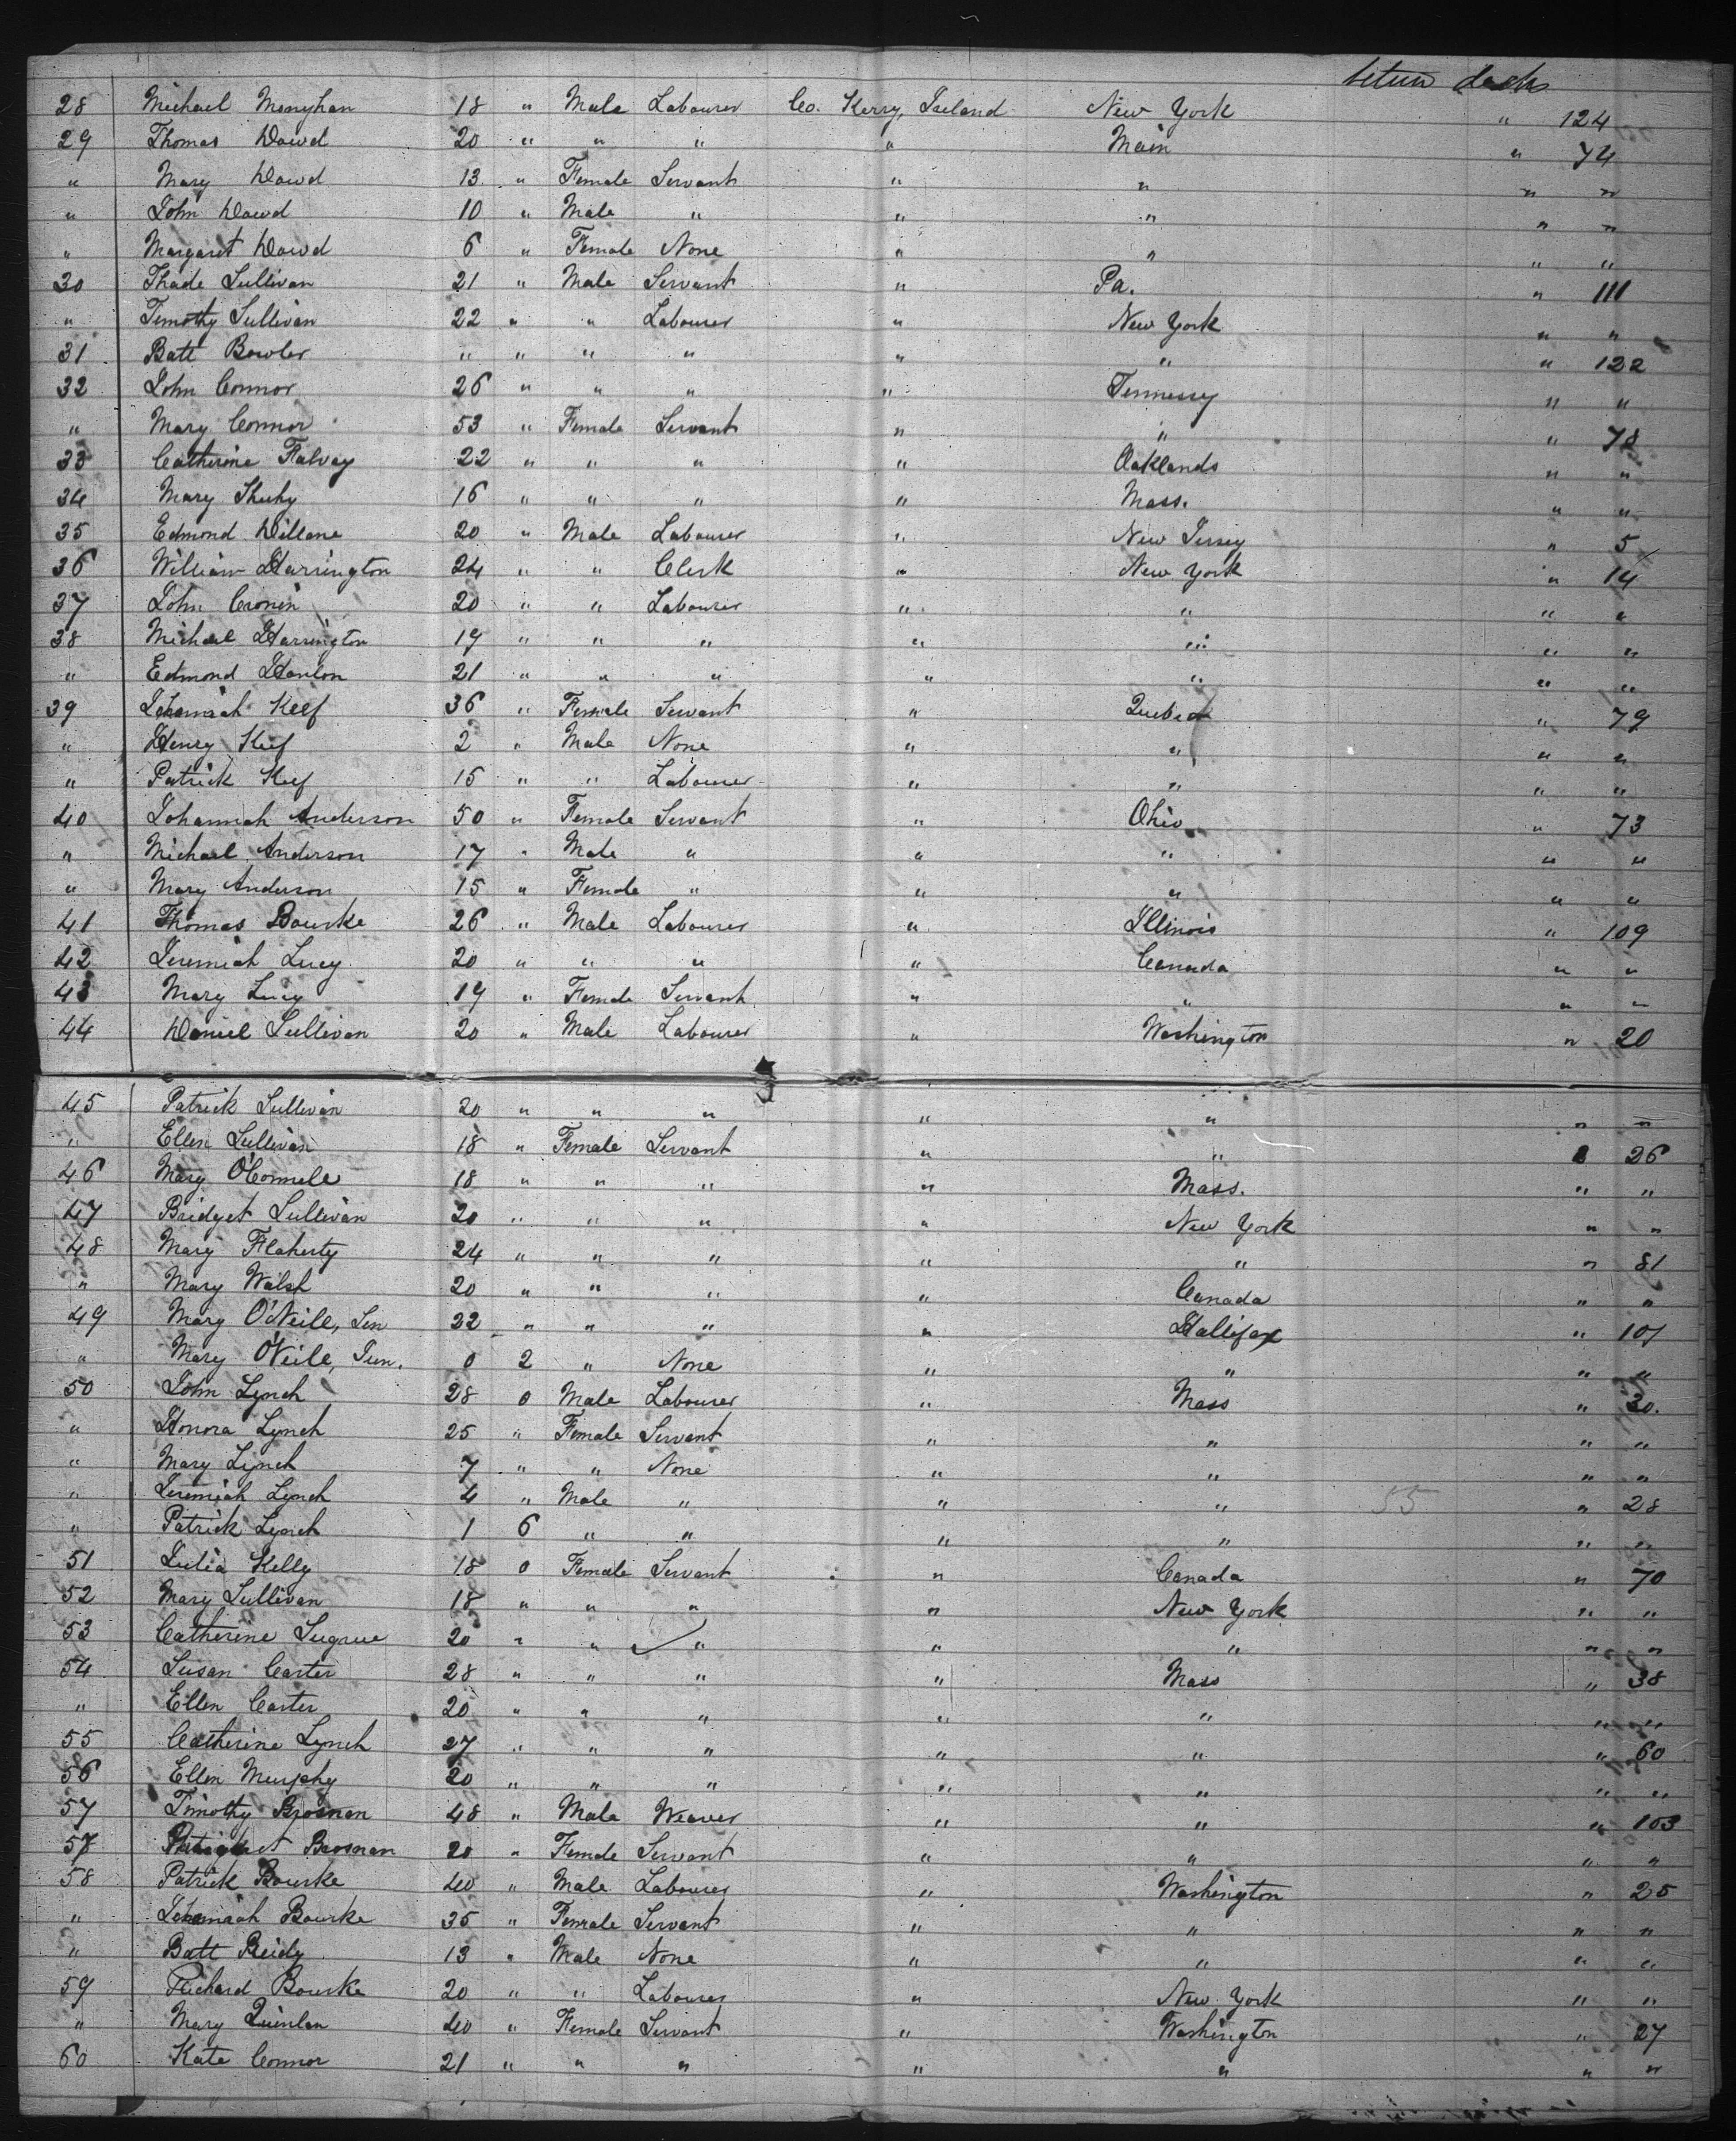 betwn decks
28 Michael Moryhan 18 " Male Labourer Co. Kerry, Ireland New York " 124
29 Thomas Dowd 20 " " " " Main " 74
" Mary Dowd 13 " Female Servant " " " "
" John Dowd 10 " Male " " " " "
" Margaret Dowd 6 " Female None " " " "
30 Thade Sullivan 21 " Male Servant " Pa. " 111
" Timothy Sullivan 22 " " Labourer " New York " "
31 Batt Bowler " " " " " " " 122
32 John Connor 26 " " " " Tennessy " "
" Mary Connor 53 " Female Servant " " " 78
33 Catherine Falvey 22 " " " " Oaklands " "
34 Mary Shuhy 16 " " " " Mass. " "
35 Edmond Dillane 20 " Male Labourer " New Jersey " 5
36 William Harrington 24 " " Clerk " New York " 14
37 John Cronin 20 " " Labourer " " " "
38 Michael Harrington 19 " " " " " " "
" Edmond Hanlon 21 " " " " " " "
39 Johannah Keef 36 " Female Servant " Quebec " 79
" Henry Keef 2 " Male None " " " "
" Patrick Keef 15 " " Labourer " " " "
40 Johannah Anderson 50 " Female Servant " Ohio " 73
" Michael Anderson 17 " Male " " " " "
" Mary Anderson 15 " Female " " " " "
41 Thomas Bourke 26 " Male Labourer " Illinois " 109
42 Jeremiah Lucy 20 " " " " Canada " "
43 Mary Lucy 19 " Female Servant " " " "
44 Daniel Sullivan 20 " Male Labourer " Washington " 20
45 Patrick Sullivan 20 " " " " " " "
" Ellen Sullivan 18 " Female Servant " " 26
46 Mary O'Connele 18 " " " " Mass. " "
47 Bridget Sullivan 20 " " " " New York " "
48 Mary Flaherty 24 " " " " " " 81
" Mary Walsh 20 " " " " Canada " "
49 Mary O'Neile, Sen 22 " " " " Hallifax " 107
" Mary O'Neile, Jun. 0 2 " None " " " "
50 John Lynch 28 0 Male Labourer " Mass " 30.
" Honora Lynch 25 " Female Servant " " " "
" Mary Lynch 7 " " None " " " "
" Jeremiah Lynch 4 " Male " " " 55 " 28
" Patrick Lynch 1 6 " " " " " "
51 Julia Kelly 18 0 Female Servant " Canada " 70
52 Mary Sullivan 18 " " " " New York " "
53 Catherine Sugrue 20 " " " " " " "
54 Susan Carter 28 " " " " Mass " 38
" Ellen Carter 20 " " " " " " "
55 Catherine Lynch 27 " " " " " " 60
56 Ellen Murphy 20 " " " " " " "
57 Timothy Brosnan 48 " Male Weaver " " " 103
57 Brosnan 20 " Female Servant " " " "
58 Patrick Bourke 40 " Male Labourer " Washington " 25
" Johannah Bourke 35 " Female Servant " " " "
" Batt Reidy 13 " Male None " " " "
59 Richard Bourke 20 " " Labourer " New York " "
" Mary Quinlan 40 " Female Servant " Washington " 27
60 Kate Connor 21 " " " " " " "